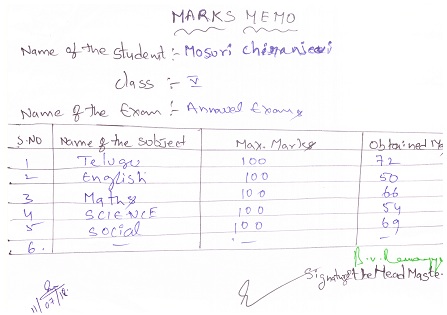 MARKS MEMO
Name of the Student :- Mosuri chiranjeevi
class :- V
Name of the Exam :- Annaval Exams
S.NO Name of the Subject Max. Marks Obtained M
1 Telugu 100 72
2 English 100 50
3 Maths 100 66
4 SCIENCE 100 54
5 Social 100 69
6. — — —
B.V.
Signature of the Head Maste
11/07/18